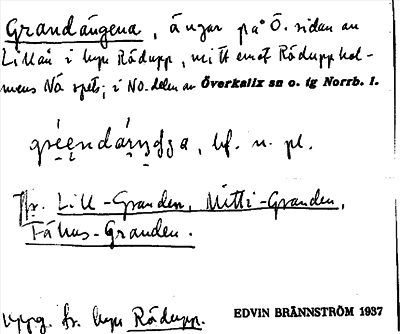 Grandängena, ängar på Ö. sidan av
Lillån i byn Rödupp, mitt emot Rödupphol-
mens NÖ spets; i NO. delen av Överkalix sn o. tg Norrb. l.
bf. n. pl.
Jfr. Lill-Granden, Mitti-Granden,
Fähus-Granden.
Uppg. fr. byn Rödupp.
EDVIN BRÄNNSTRÖM 1937